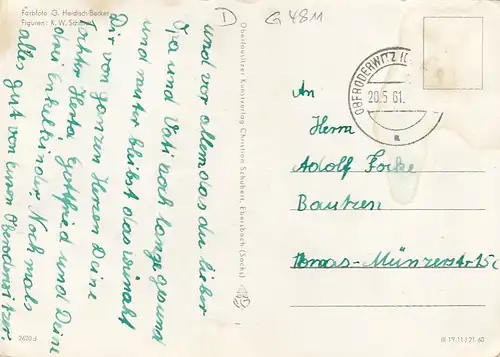 Farbfoto G. Heidisch-Becker
Figuren: K. W. Schubert
D
G 4811
und vor allem das du lieber
Opa und Vati noch lange gesund
und munter bleibst das wünscht
Dir von ganzen Herzen Deine
Tochter Herta Gottfried und Deine
drei Enkelkinder Noch mals
alles gut von Euren Oberoderwitzer
Oberlausitzer Kunstverlag Christian Schubert, Ebersbach (Sachs)
OBERODERWITZ
20.5.61.
a
An
Herrn
Adolf Focke
Bautzen
Münzerstr 15
2620 d
III-19-11 J 21-60